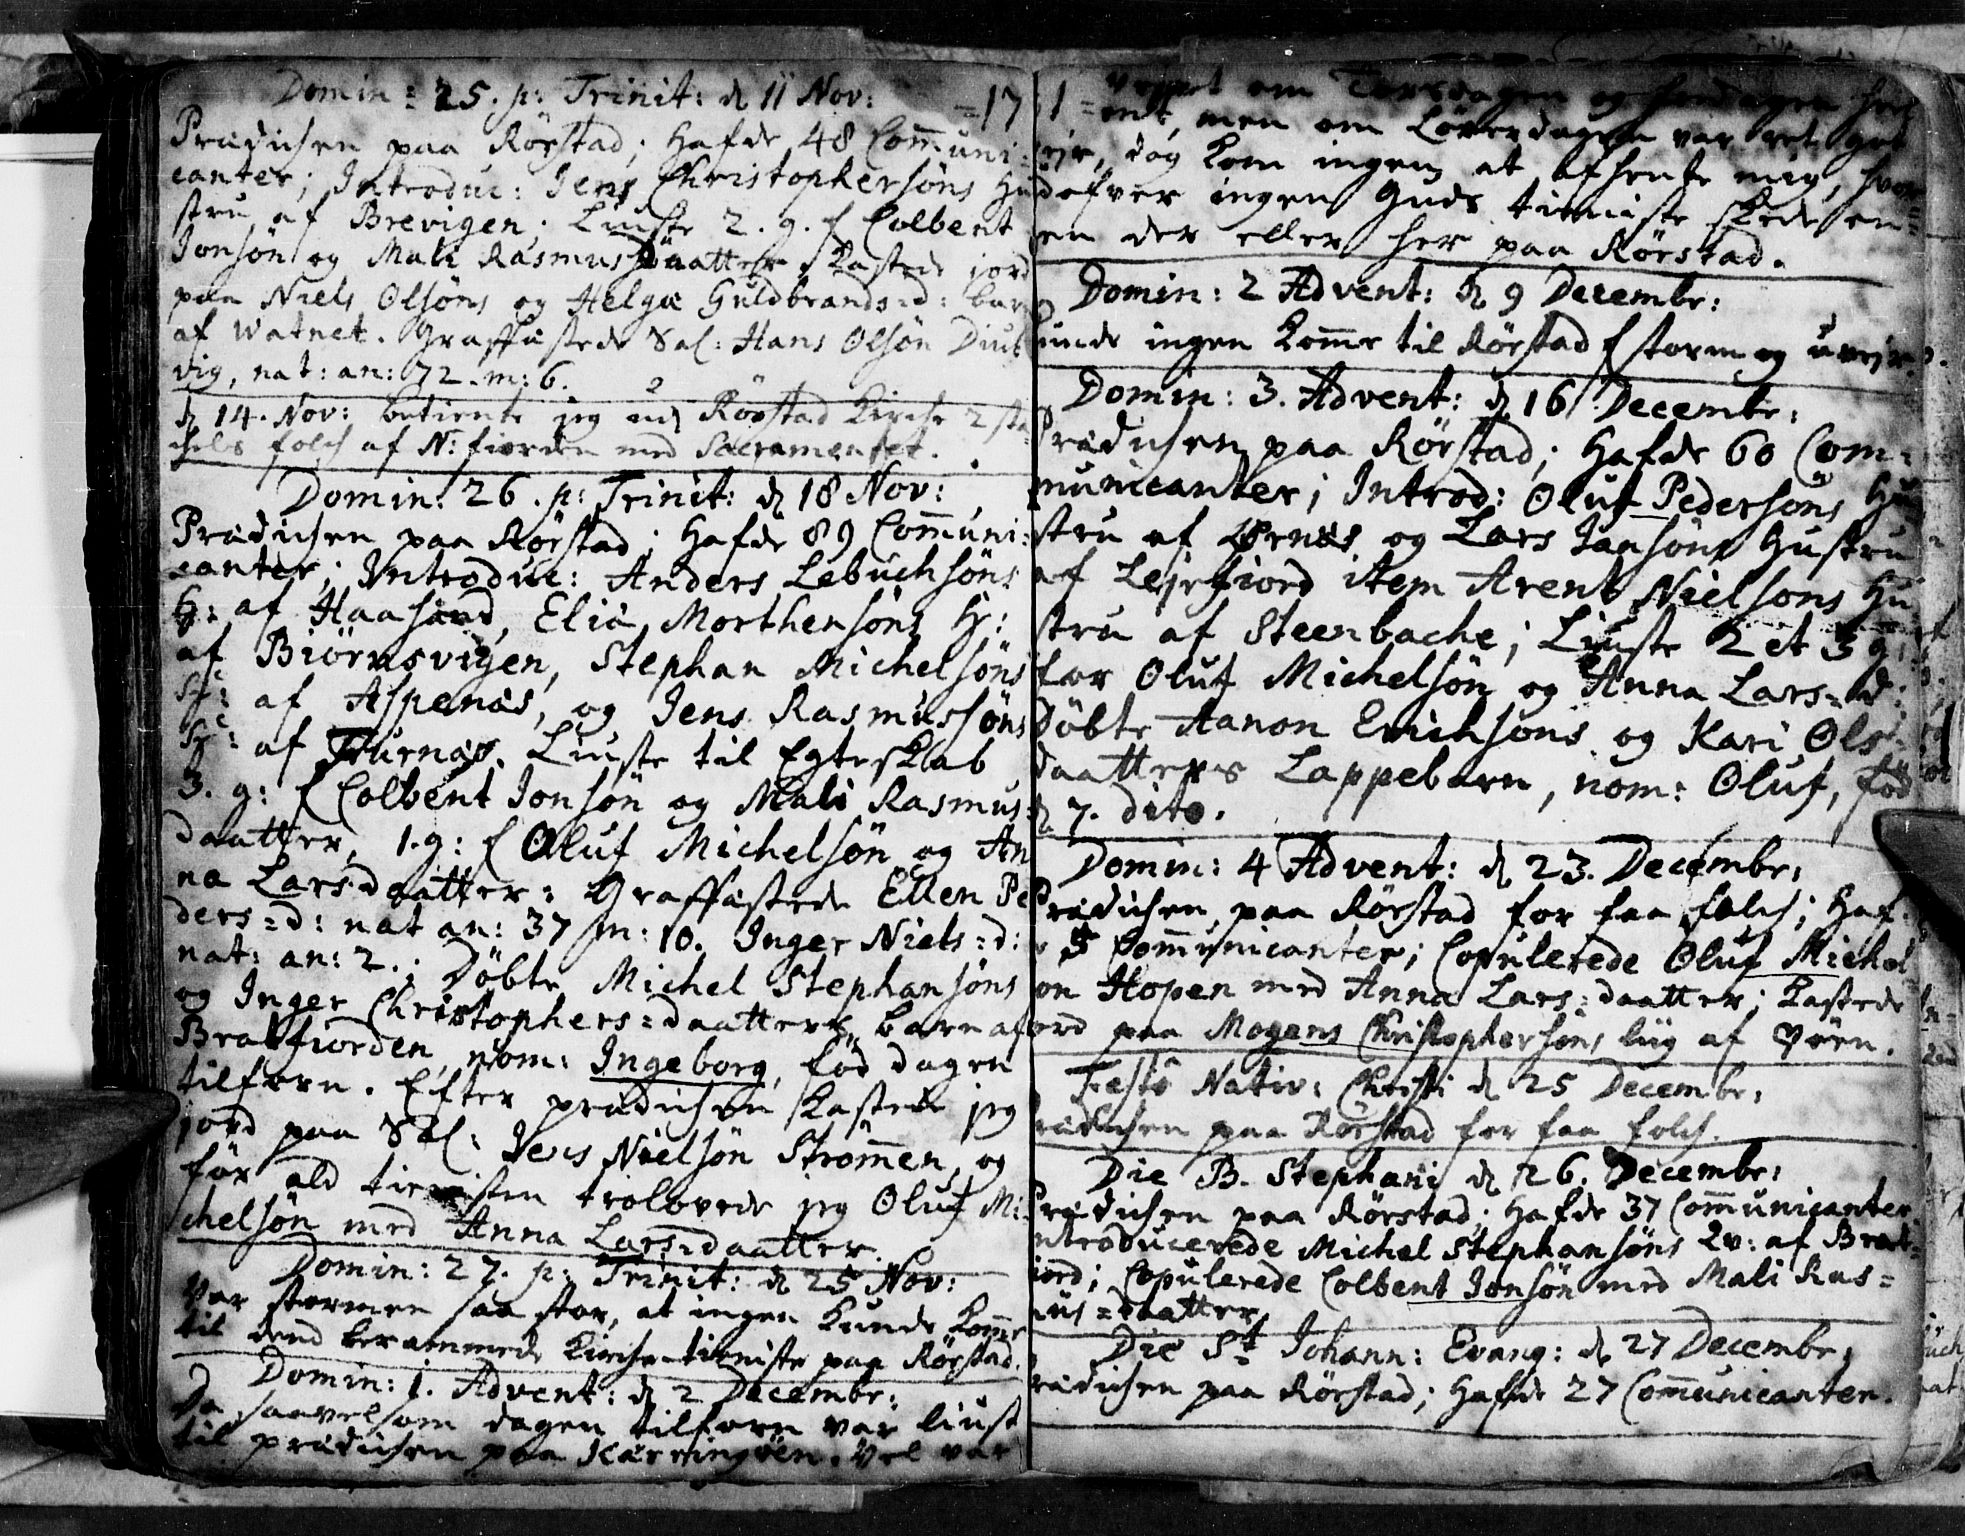 Domin: 25. p: Trinit: d 11 Nov: =17
Prædichen paa Rörstad; Hafde 48 Communi=
canter; Introduc: Jens Christophersöns Hu
stru af Brevigen; Liuste 2. g. f Colbent
Jonsön og Mali Rasmusdaatter, kastede jord
paa Niels Olsöns og Helgæ Guldbrands=d: barn
af Watnet. Graffæstede Sal: Hans Olsön
vig, nat: an: 72. m: 6.
d 14. Nov: betiente jeg ud Rörstad Kirche 2
folch af N: fiorden med Sacramentet.
Domin: 26. p: Trinit: d 18 Nov:
Prædichen paa Rörstad; Hafde 89 Communi=
canter; Introduc: Anders Lebuchsöns
H: af Haasand, Eliæ Morthensöns H:
af Biörnsvigen, Stephan Michelsöns
H: af Aspenæs, og Jens Rasmussöns
H: af Furnæs. Liuste til Egteskab
3. g: f Colbent Jonsön og Mali Rasmus=
daatter, 1. g: f Oluf Michelsön og An
na Larsdaatter: Graffæstede Ellen Pe
ders=d: nat an: 37 m: 10. Inger Niels=d:
nat: an: 2.; Döbte Michel Stephansöns
og Inger Christophers=daatters barn af
Bratfiorden, nom: Ingeborg, föd dagen
tilforn. Efter prædichen kastede jeg
jord paa Sal: Jens Nielsön Strömmen, og
för ald tienisten trolovede jeg Oluf Mi=
chelsön med Anna Larsdaatter.
Domin: 27. p: Trinit: d 25 Nov:
Var stormen saa stor, at ingen kunde komme
til dend berammede Kirche=tieniste paa Rörstad.
Domin: 1. Advent: d 2 Decembr:
Da saavelsom dagen tilforn var liust
til prædichen paa Kærringöen. Vel var
1 om Torsdagen og fredagen
ont, men om Löverdagen var ret got
vejr, dog kom ingen at afhente mig, hvor
defver ingen Guds tieniste skede en=
en der eller her paa Rörstad.
Domin: 2 Advent: d 9 Decembr:
unde ingen komme til Rörstad f storm og uvejr.
Domin: 3. Advent: d 16 Decembr:
Prædichen paa Rörstad; Hafde 60 Com=
municanter; Introd: Oluf Pedersöns Hu
stru af Ørnes og Lars Jansöns Hustru
af Lejrfiord item Arent Nielsöns Hu
stru af Steenbache; Liuste 2 et 3 g:
for Oluf Michelsön og Anna Lars=d:
Döbte Aanon Erichsöns og Kari Ols=
daatters Lappebarn, nom: Oluf, föd
d 7. dito.
Domin: 4 Advent: d 23. Decembr:
Prædichen paa Rörstad for faa folch; Haf=
5 Communicanter; Copulerede Oluf Michel
ön Hopen med Anna Lars=daatter; kastede
jord paa Mogens Christophersöns liig af
Festo Nativ: Christi d 25 Decembr:
Prædichen paa Rörstad for faa folch.
Die B. Stephani d 26. Decembr:
Prædichen paa Rörstad; Hafde 37 Communicanter
Introducerede Michel Stephansöns Qv: af Brat=
fiord; Copulerede Colbent Jonsön med Mali Ras=
mus=daatter.
Die St Johann: Evang: d 27 Decembr:
Prædichen paa Rörstad; Hafde 27 Communicanter.